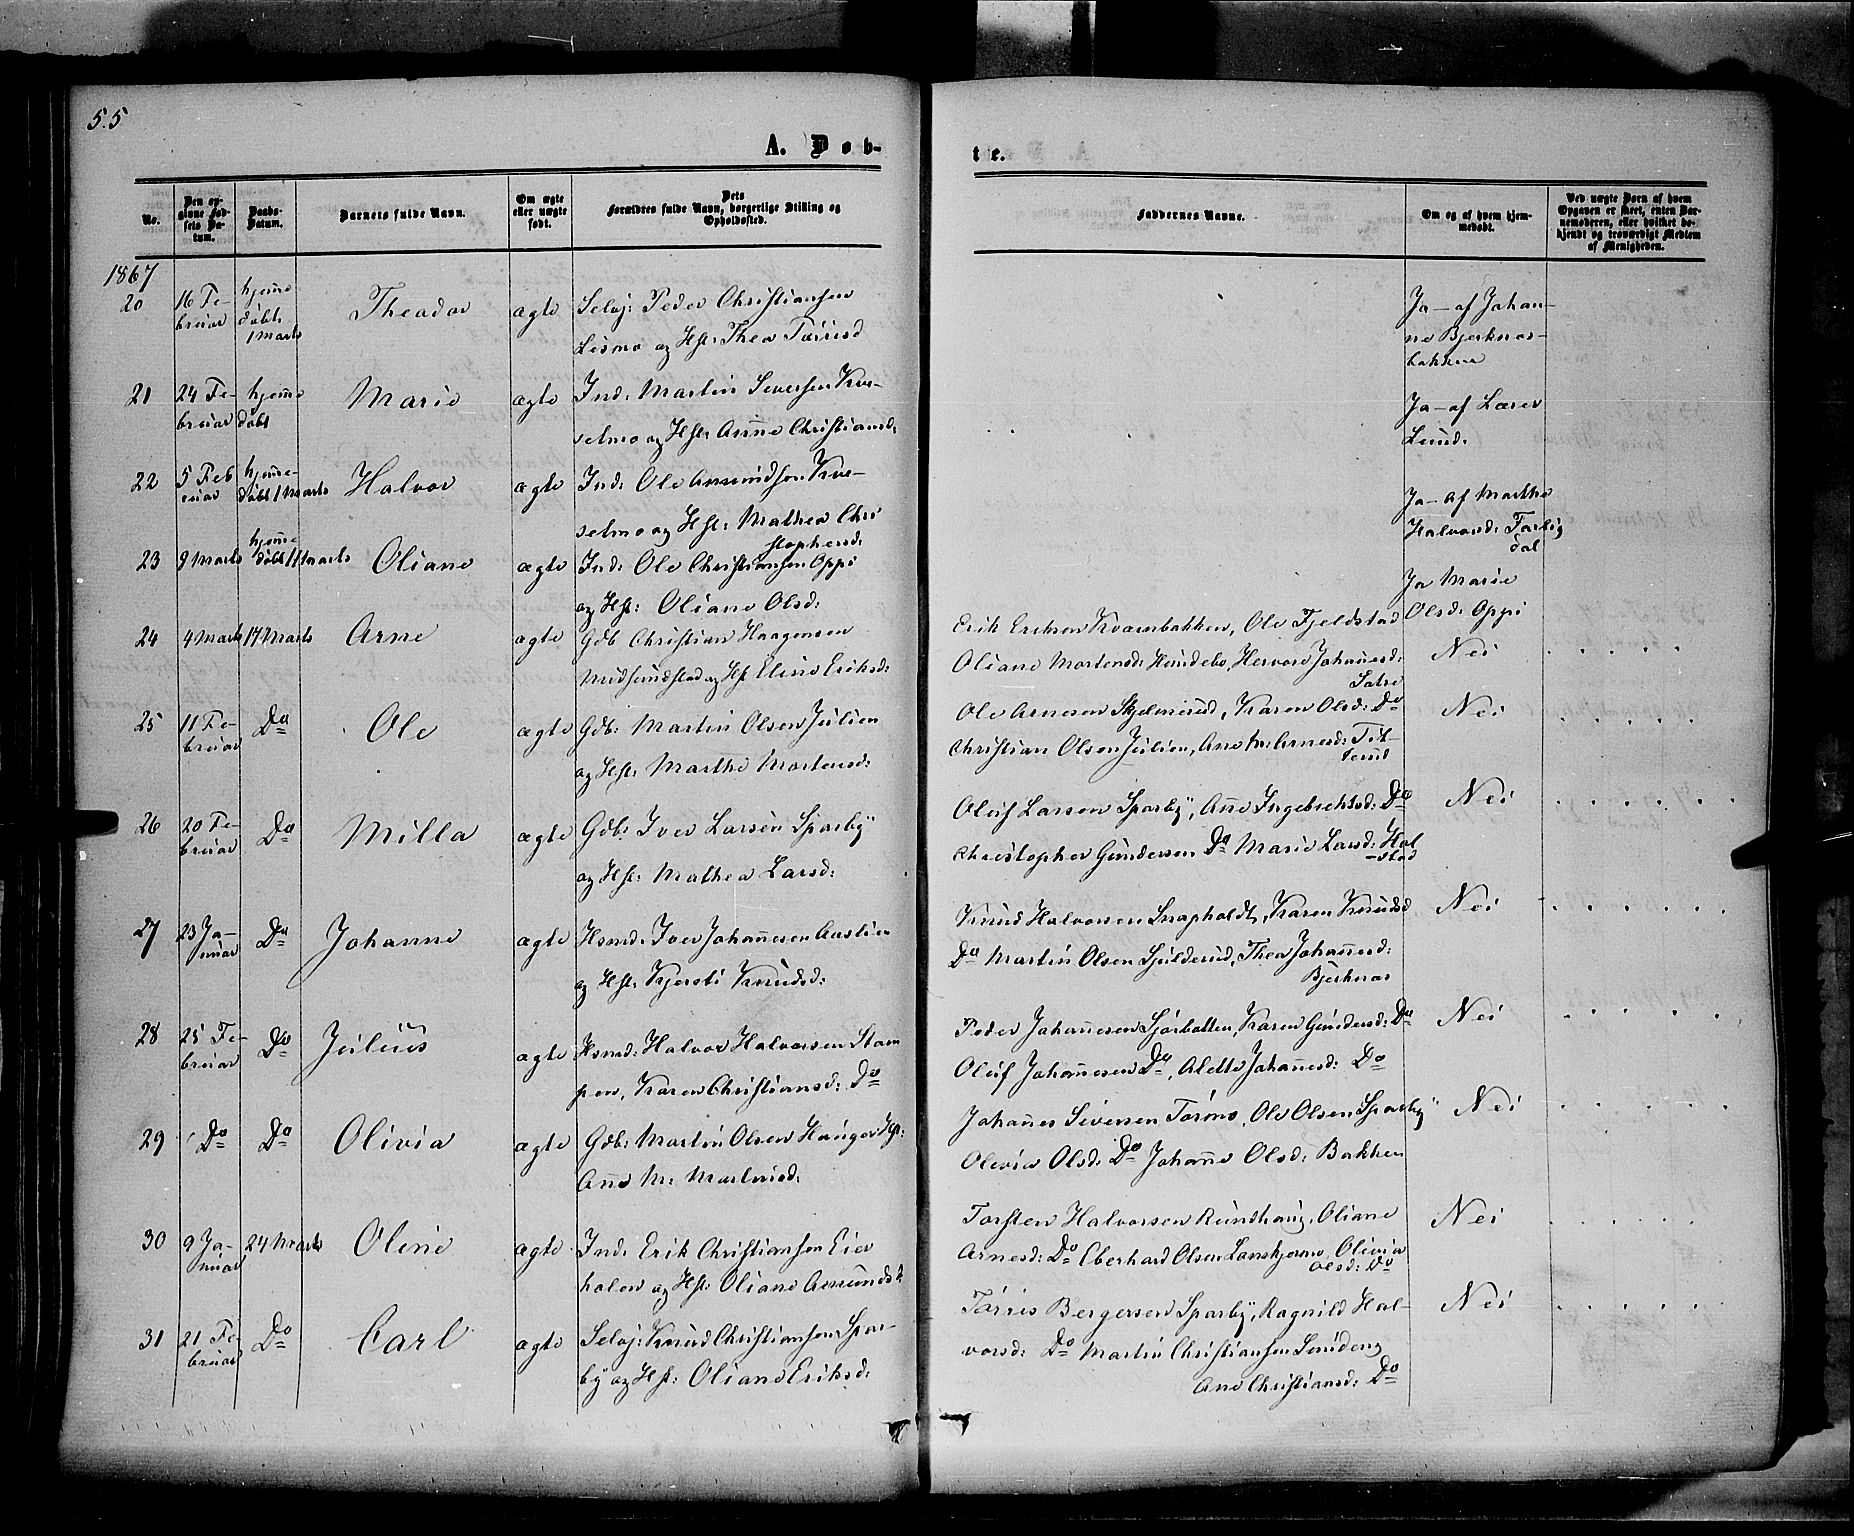 55
A. Døb-
te.
No.
Den opgivne Fødsels Datum.
Daabs-Datum.
Barnets fulde Navn.
Om ægte eller uægte født.
Dets Forældres fulde Navn, borgerlige Stilling og Opholdssted.
Faddernes Navne.
Om og af hvem hjemmedøbt.
Ved uægte Børn af hvem Opgaven er skeet, enten Barnemoderen, eller hvilket bekjendt og troværdigt Medlem af Menigheden.
1867
20 16 Februar hjemmedøbt 1 Marts Theodor ægte Selvj: Peder Christiansen
Lismo og Hst: Thea Tørrisd
Ja - af Johanne Bjerknesbakken
21 24 Februar hjemmedøbt Marie ægte Ind: Martin Seversen Kve-
selmo og Hst: Anne Christiansd:
Ja - af Lærer Lund.
22 5 Februar hjemmedøbt 1 Marts Halvor ægte Ind: Ole Amundsen Kve-
selmo og Hst: Mathea Chri
stophersd:
Ja - af Marthe Halvorsd:
23 9 Marts hjemmedøbt 11 Marts Oliane ægte Ind: Ole Christiansen Oppi
og Hst: Oliane Olsd:
Ja Marie Olsd: Oppi
24 4 Marts 17 Marts Arne ægte Gdb Christian Haagensen
og Hst Eline Eriksd:
Erik Eriksen Kvernbakken, Ole Fjeldstad
Oliane Mortensd: Johannesd:
Sætre
Nei . . . . .
25 11 Februar Do Ole ægte Gdb: Martin Olsen Julien
og Hst: Marthe Mortensd:
Ole Arnesen Skjelmerud, Karen Olsd: Do
Christian Olsen Julien, Ane M: Arnesd:
Nei . . . . .
26 20 Februar Do Milla ægte Gdb: Iver Larsen Sparby
og Hst: Mathea Larsd:
Oluf Larsen Sparby, Ane Ingebrektsd: Do
Christopher Gundersen Do Marie Larsd: Hal
-stad
Nei . . . . . .
27 23 Januar Do Johanne ægte Hsmd: Iver Johannesen Auslien
og Hst: Kjersti Knudsd:
Knud Halvorsen Snapholdt, Karen Knudsd
Do Martin Olsen Sjulderud, Thea Johannesd:
Bjerknæs
Nei . . . . . .
28 25 Februar Do Julius ægte Hsmd: Halvor Halvorsen Stam
pen, Karen Christiansd: Do
Peder Johannesen Sjørbotten, Karen Gundersd: Do
Oluf Johannesen Do, Alette Johannesd: Do
Nei . . . . .
29 Do Do Olivia ægte Gdb: Martin Olsen Hauger Hst:
Ane M: Martinsd:
Johannes Siversen Tørmo, Ole Olsen Sparby
Olivia Olsd: Do Johanne Olsd: Bakken
Nei . . . . .
30 9 Januar 24 Marts Oline ægte Ind: Erik Christiansen Eier
holen og Hst: Oliane Amundsd:
Torsten Halvorsen Rundhaug, Oliane
Arnesd: Do Eberhard Olsen Lanskjernmo, Olivia
Olsd: Do
Nei . . . . .
31 21 Februar Do Carl ægte Selvj: Knud Christiansen Spar-
by og Hst: Oliane Eriksd:
Tørris Bergersen Sparby, Ragnild Hal-
vorsd: Do Martin Christiansen Lundeng
Ane Christiansd: Do
Nei . . . . .